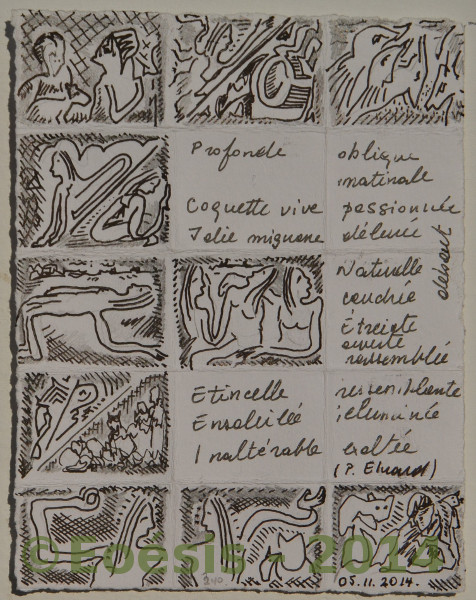 Profonde
Coquette vive
Jolie mignone
oblique
matinale
passionnée
debout
Naturelle
couchée
Étreinte
ouverte
rassemblée
Etincelle
Ensoleillée
Inaltérable
ressemblante
illuminée
(P. Eluard)
©Foésis - 2014
240.
05.11.2014.